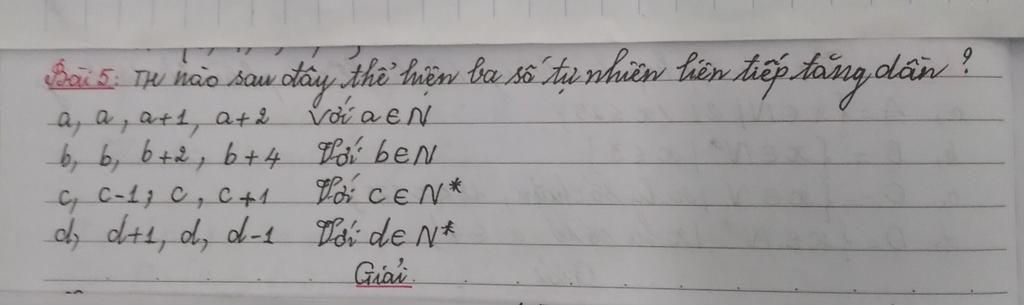 Bài 5: TH nào sau đây thể hiện ba số tự nhiên liên tiếp tăng dần?
a, a, a+1, a+2 Với a ∈ N
b, b, b+2, b+4 Với b ∈ N
c, c-1; c, c+1 Với c ∈ N*
d, d+1, d, d-1 Với d ∈ N*
Giải